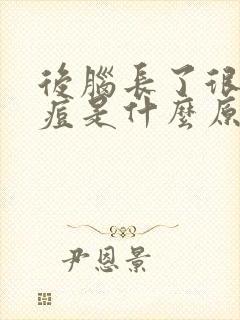 後腦長了很
痘是什麼原
尹恩景